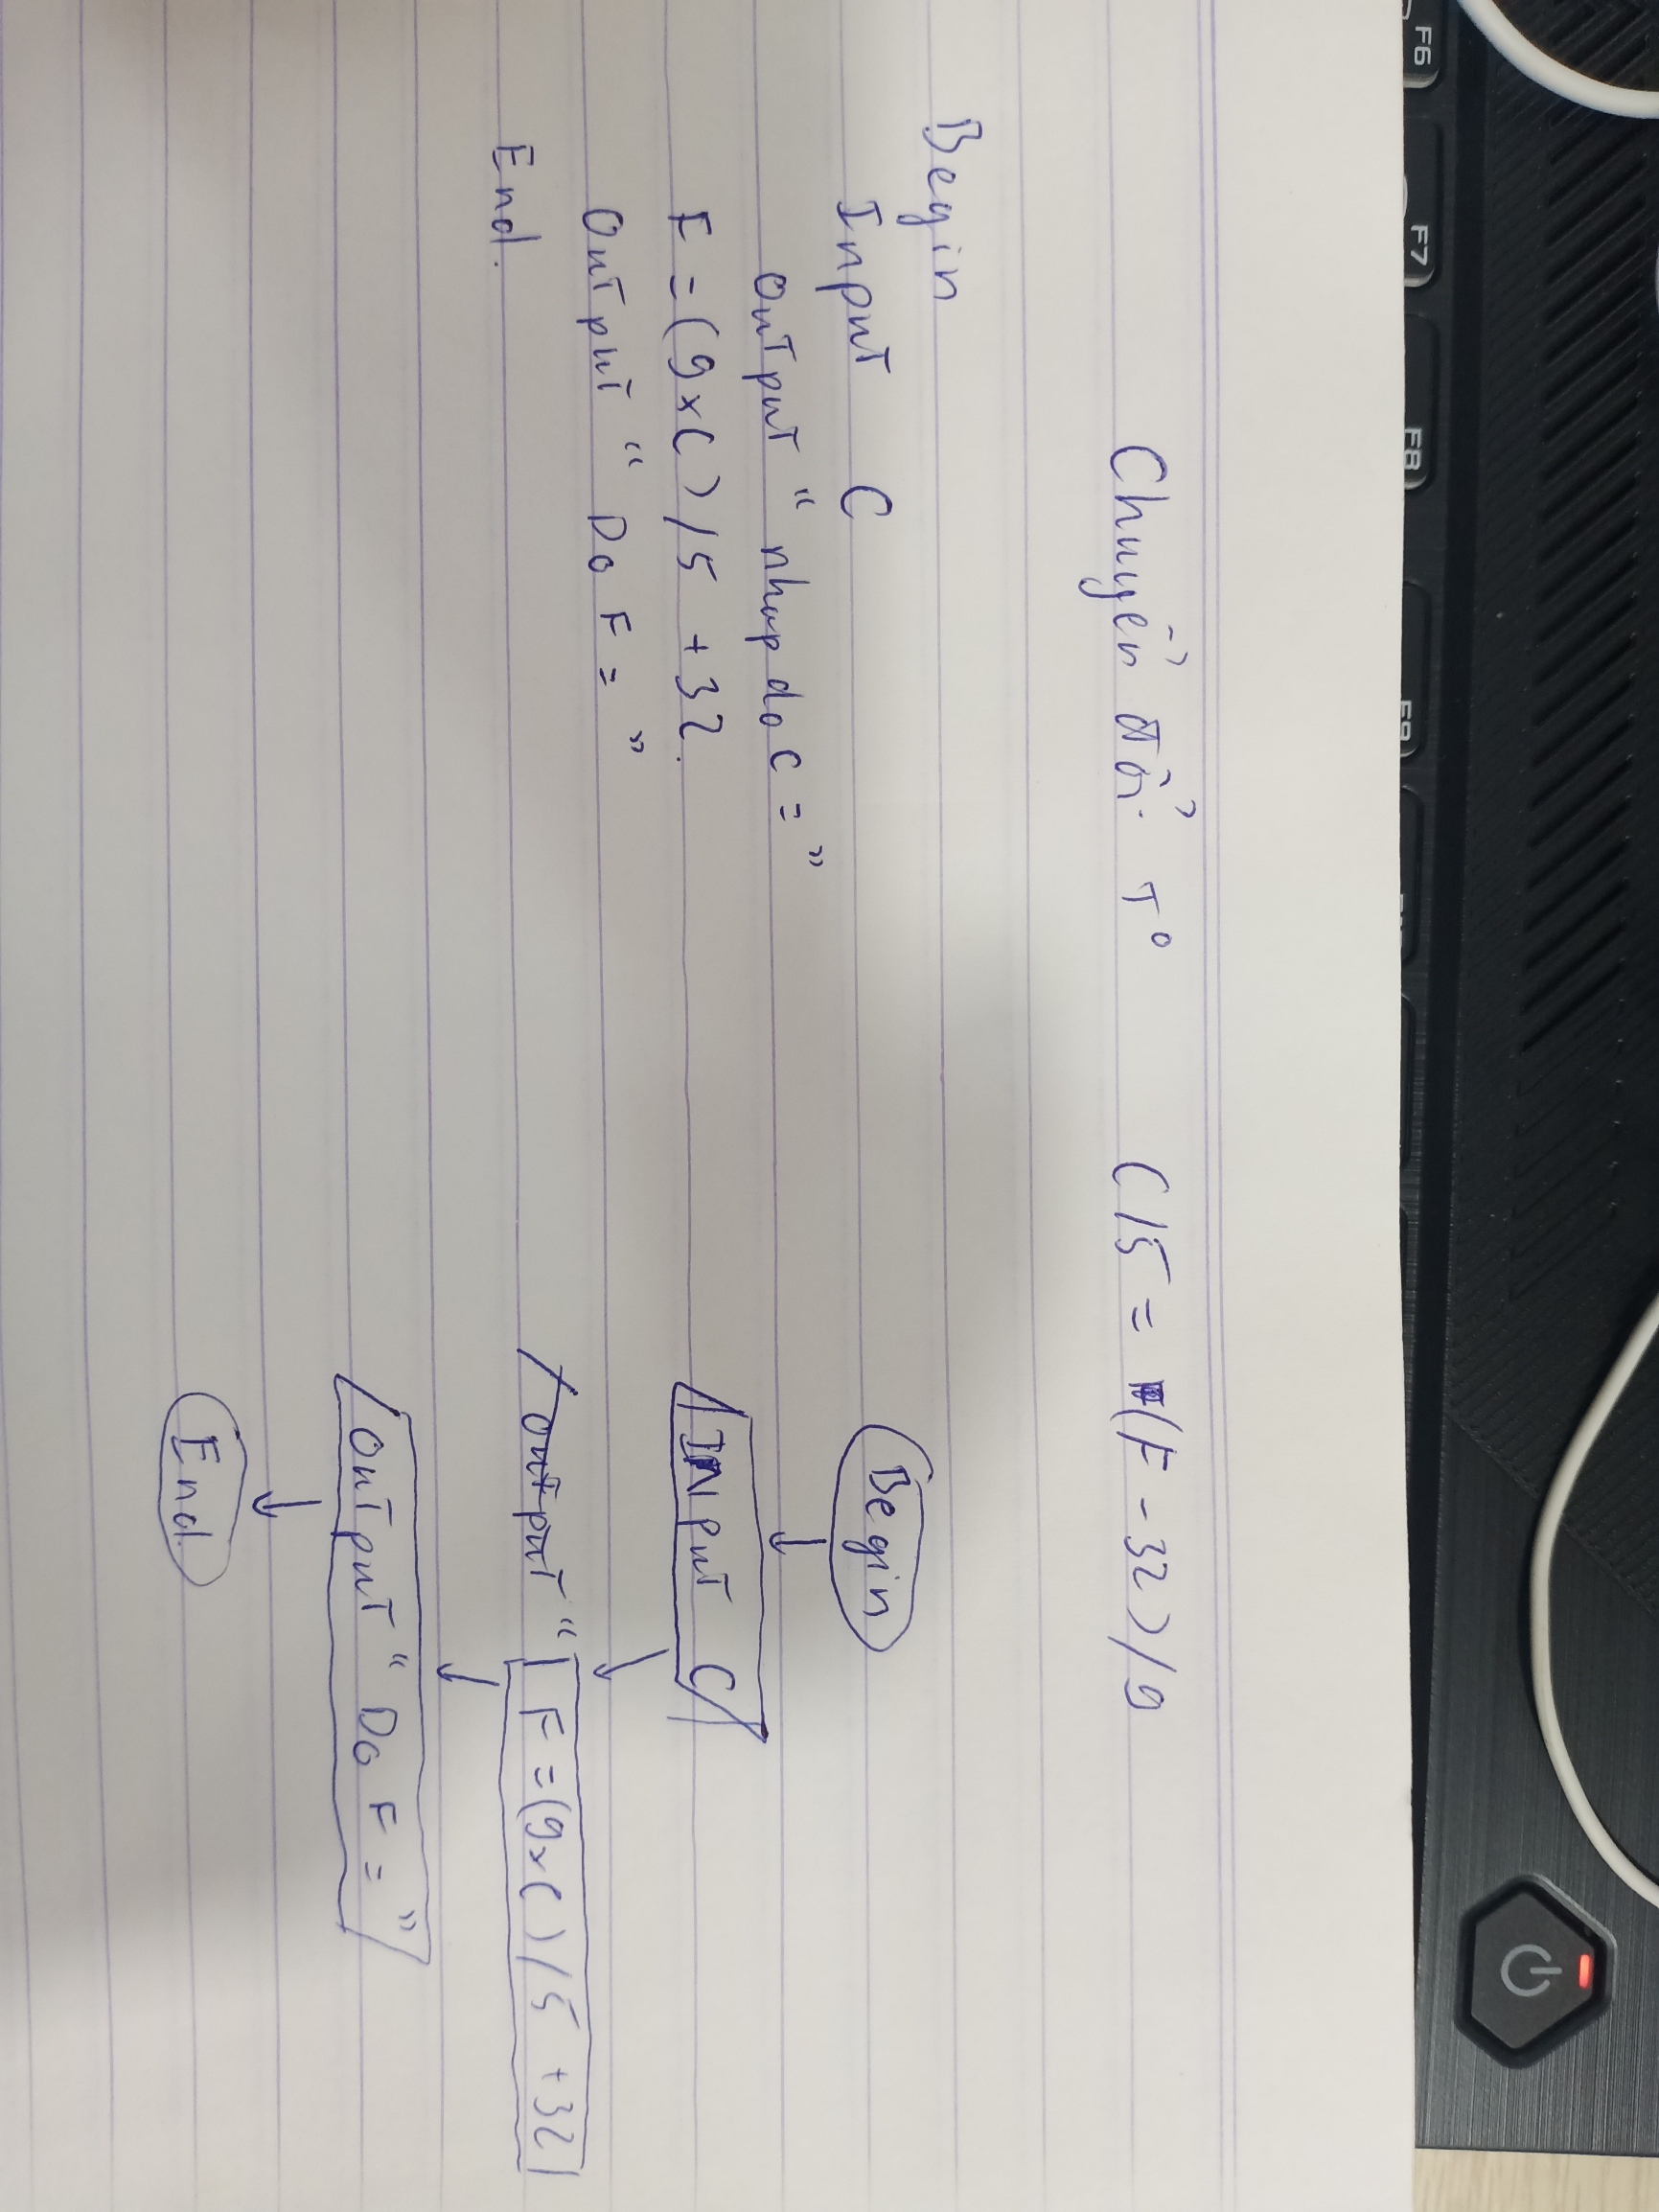 F6 F7 F8 F9
Chuyển đổi T° C/5 = (F - 32)/9
Begin
Input C
Output " nhap do C = "
F = (9xC)/5 + 32.
Output " Do F = "
End.
Begin
INput C
output "
F = (9xC)/5 + 32
Output " Do F = "
End